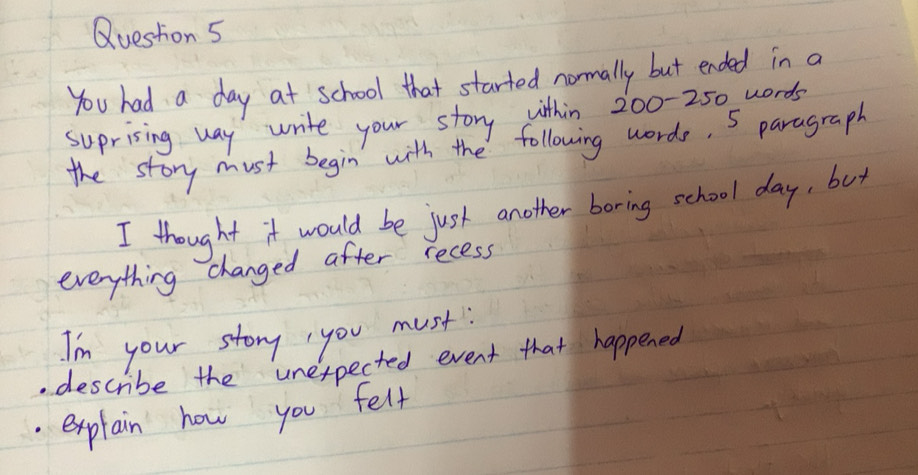 Question 5
You had a day at school that started normally but ended in a
suprising way write your story within 200-250 words
the story must begin with the following words. 5 paragraph
I thought it would be just another boring school day, but
everything changed after recess
I'm your story, you must:
• describe the unexpected event that happened
• explain how you felt